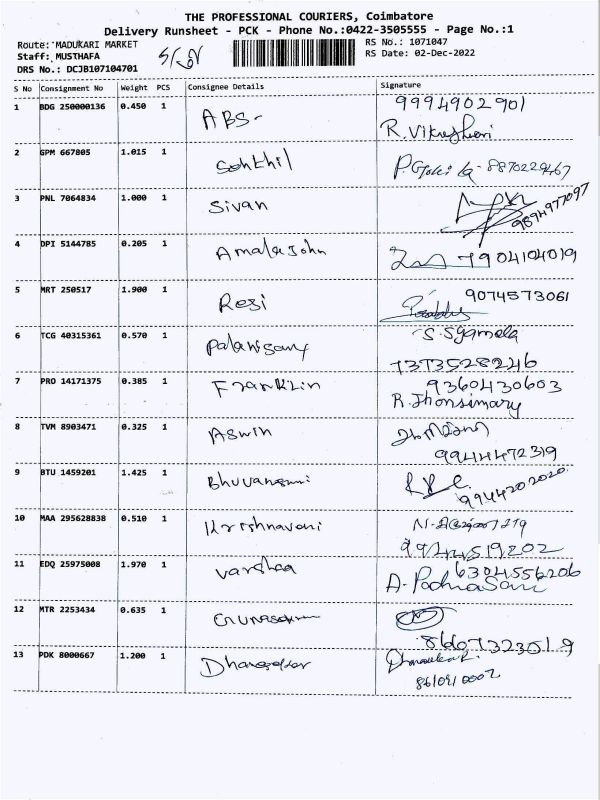 THE PROFESSIONAL COURIERS, Coimbatore
Delivery Runsheet - PCK - Phone No.:0422-3505555 - Page No.:1
Route: MADUKARI MARKET RS No.: 1071047
Staff: MUSTHAFA RS Date: 02-Dec-2022
DRS No.: DCJB107104701
S No Consignment No Weight PCS Consignee Details Signature
1 BDG 250000136 0.450 1 ABS- 9994902901
2 GPM 667805 1.015 1 Sohthil 8870229467
3 PNL 7064834 1.000 1 Sivan 9894977097
4 DPI 5144785 0.205 1 Amala John 7904104019
5 MRT 250517 1.900 1 Rosi 9074573061
6 TCG 40315361 0.570 1 Palanisamy S. Sgamela
7373528246
7 PRO 14171375 0.385 1 Franklin 9360430603
R. Jhonsimary
8 TVM 8903471 0.325 1 Aswin
9944472319
9 BTU 1459201 1.425 1 Bhuvaneswari 9944202020
10 MAA 295628838 0.510 1 Krishnaveni
9944519202
11 EDQ 25975008 1.970 1 Varshaa 6304556206
12 MTR 2253434 0.635 1
8667323019
13 PDK 8000667 1.200 1
8610910002